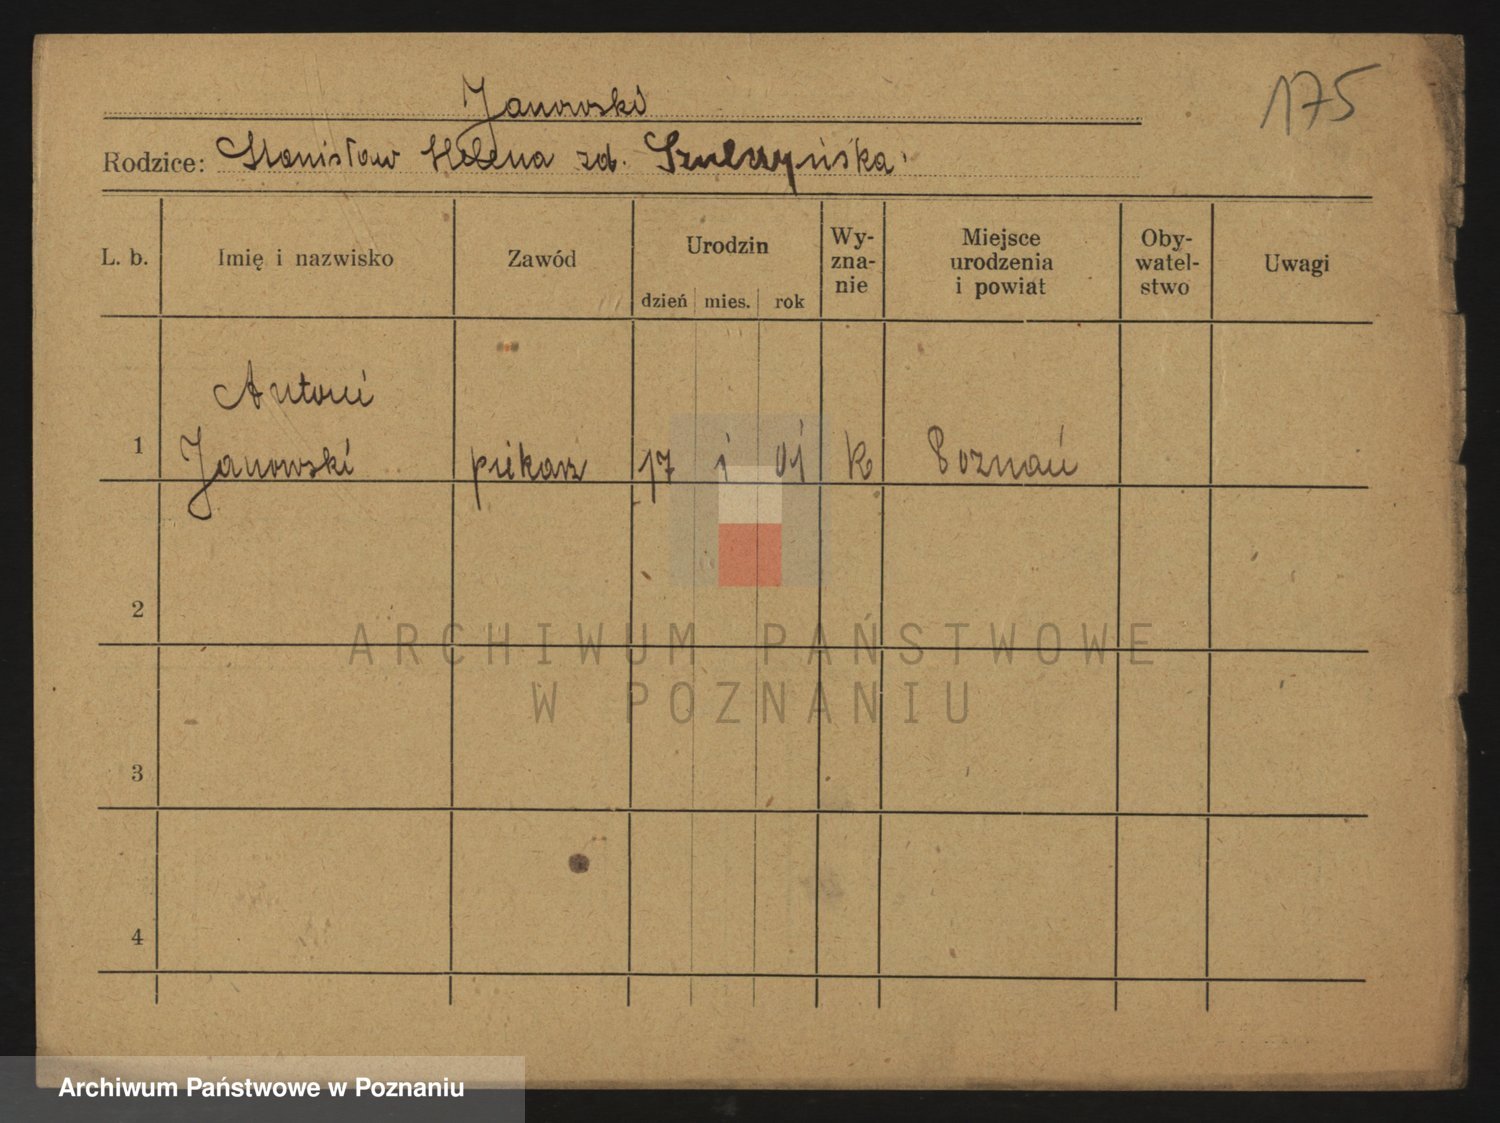 Janowski
175
Rodzice: Stanisław Helena zd. Szulczyńska
L. b. Imię i nazwisko Zawód Urodzin Wy- Miejsce Oby- Uwagi
zna- urodzenia watel-
nie i powiat stwo
dzień mies. rok
Antoni
1 Janowski piekarz 17 1 01 k Poznań
2
ARCHIWUM PAŃSTWOWE
W POZNANIU
3
4
Archiwum Państwowe w Poznaniu